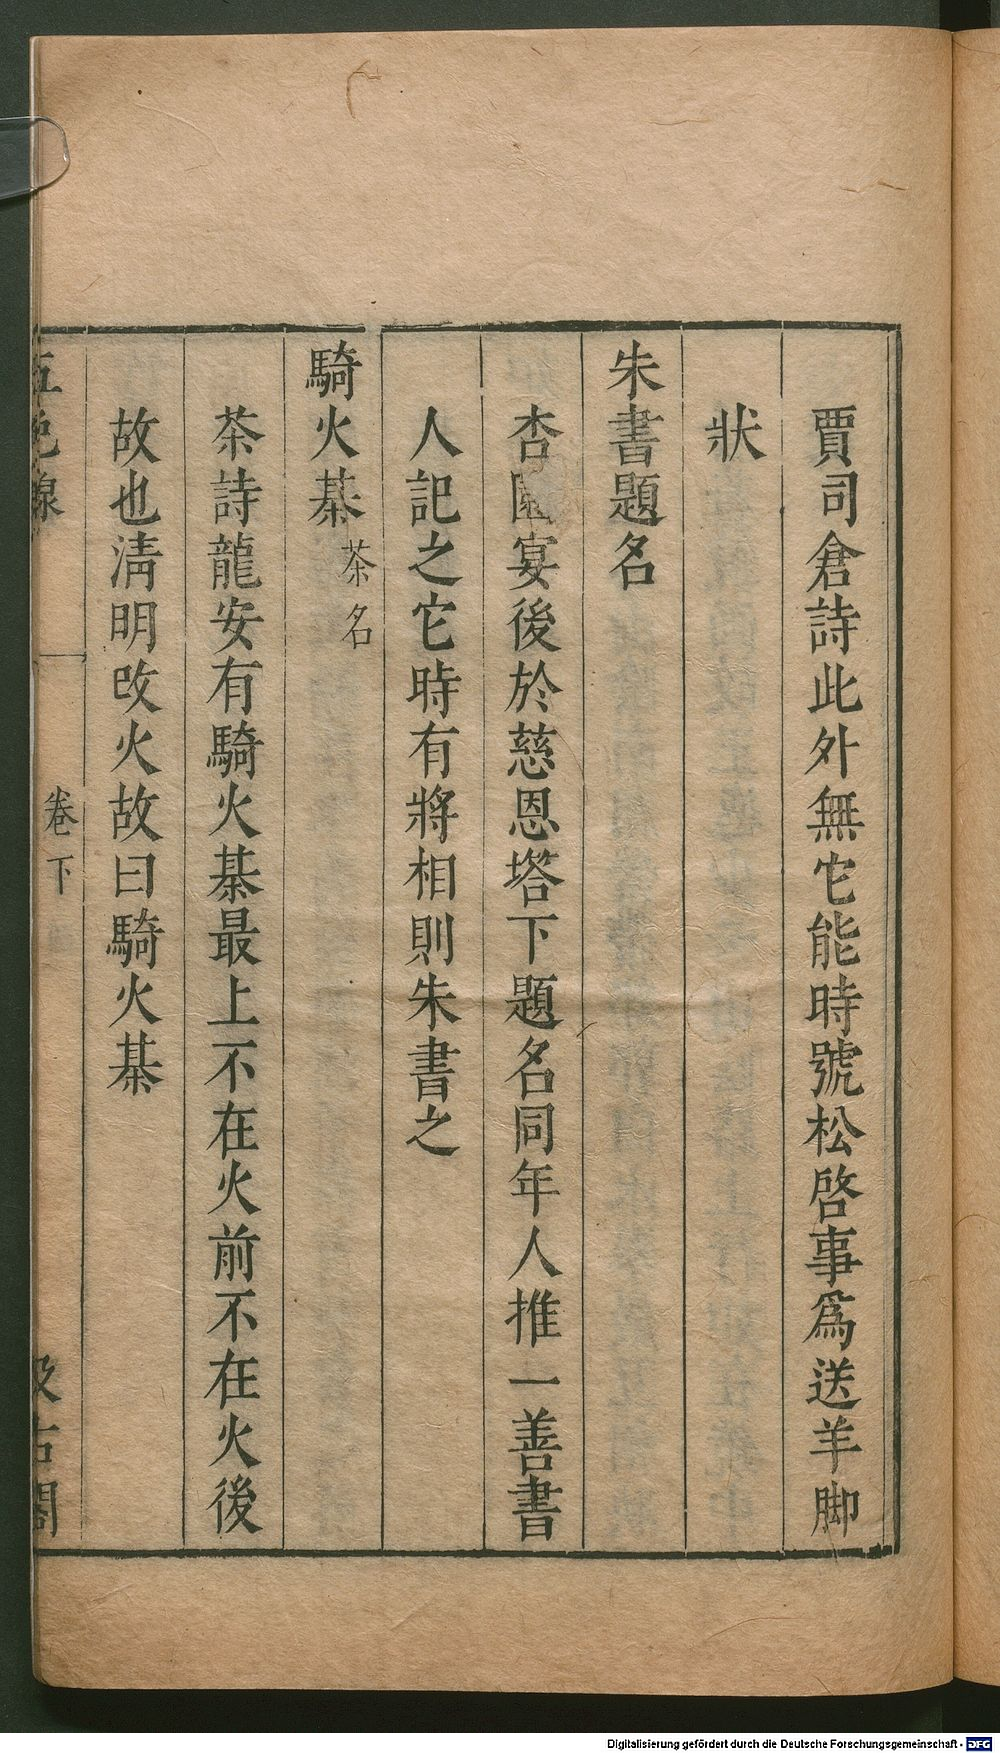 賈司倉詩此外無它能時號松啓事爲送羊脚
狀
朱書題名
杏園宴後於慈恩塔下題名同年人推一善書
人記之它時有將相則朱書之
騎火綦茶名
茶詩龍安有騎火綦最上不在火前不在火後
故也淸明改火故曰騎火綦
五色線 卷下 汲古閣
Digitalisierung gefördert durch die Deutsche Forschungsgemeinschaft - DFG